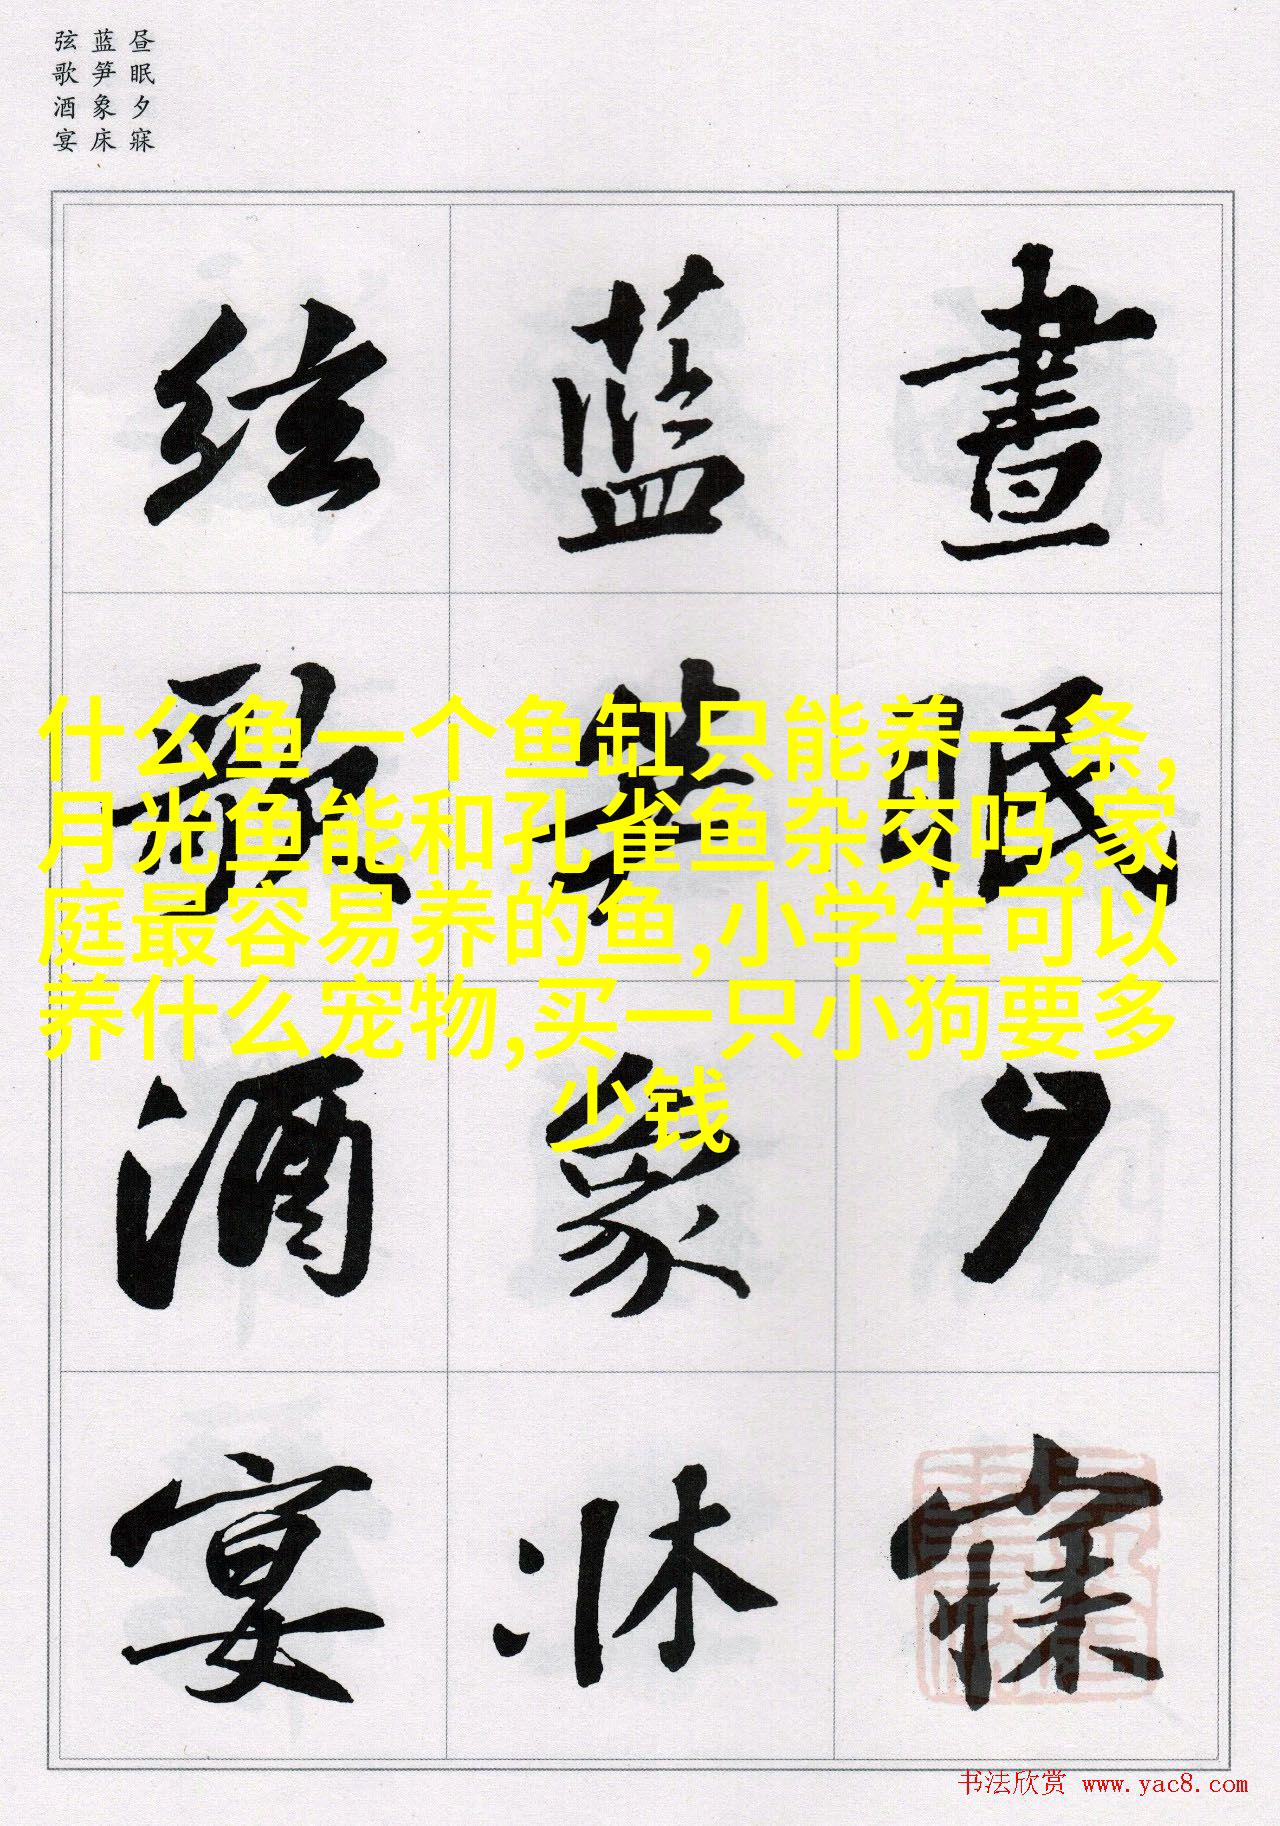 昼眠夕寐
蓝笋象床
弦歌酒宴
晝眠夕寐
蓝笋象床
弦歌酒宴
什么鱼一个鱼缸只能养一条,
月光鱼能和孔雀鱼杂交吗,家
庭最容易养的鱼,小学生可以
养什么宠物,买一只小狗要多
少钱
书法欣赏 www.yac8.com